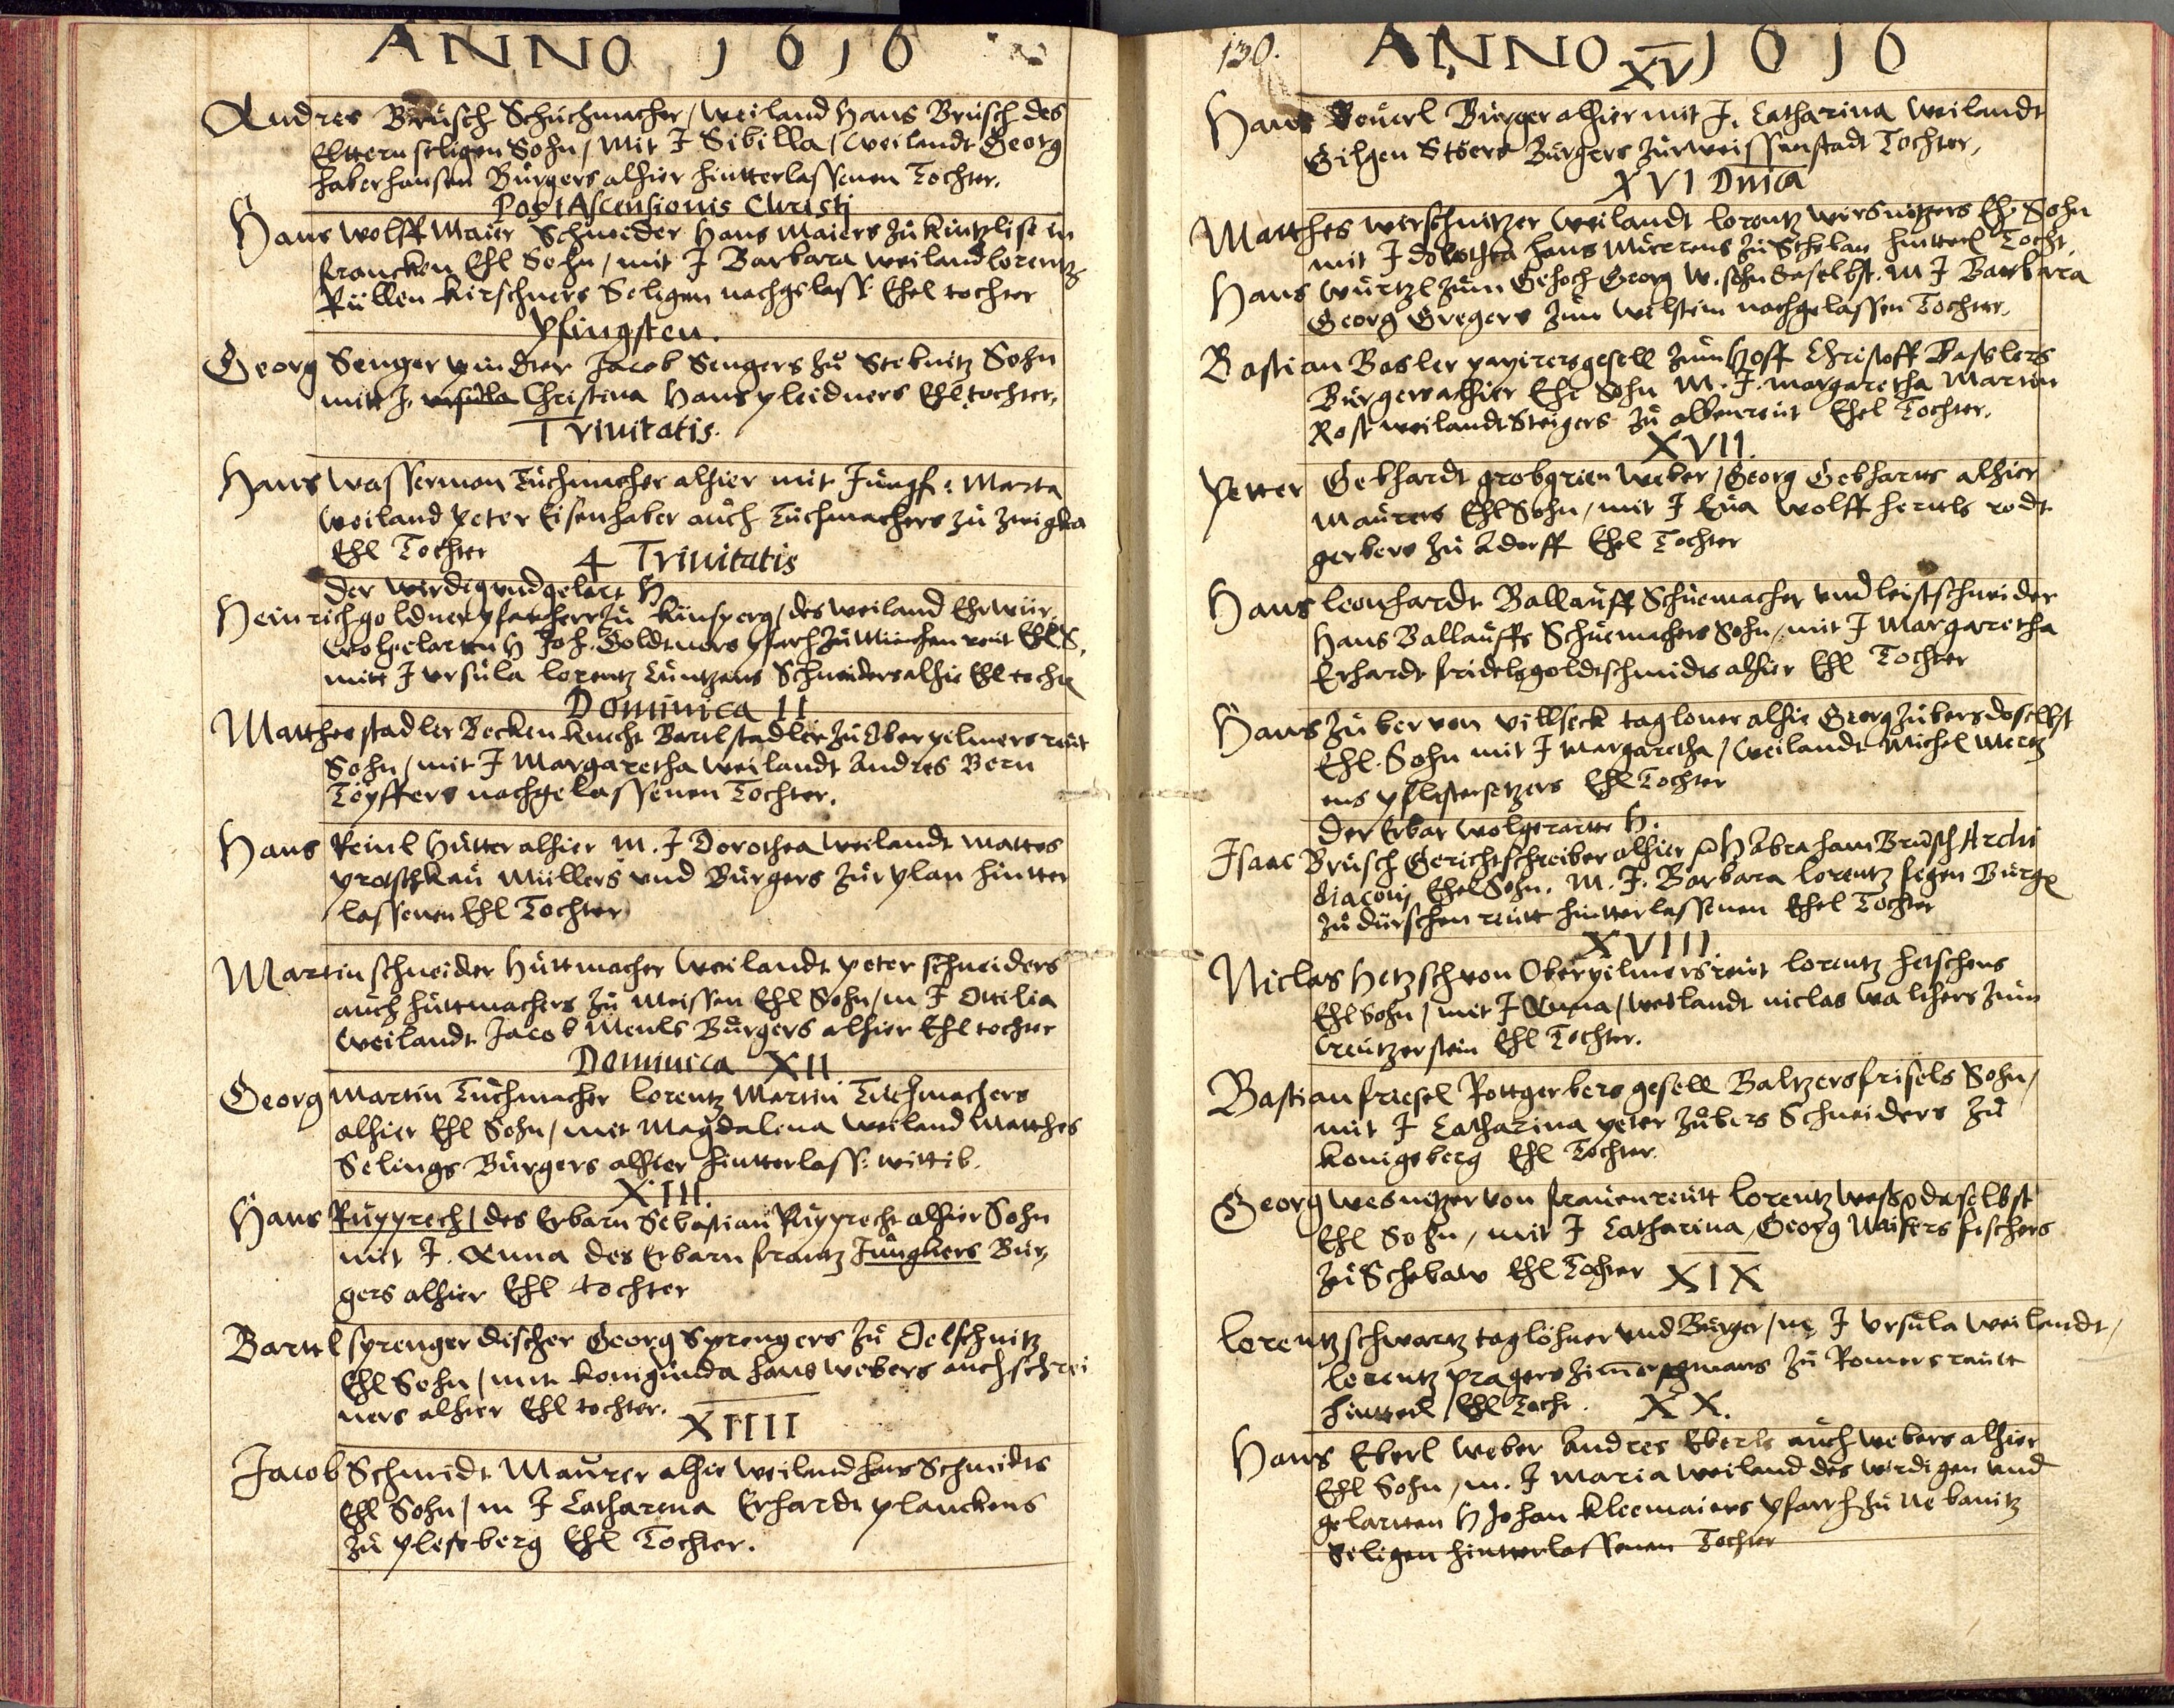 ANNO 1616
Andres Brusch Schuchmacher / weiland Hans Brusch des
Elttern seligen Sohn / Mit J Sibilla / weilandt Georg
haberhansen Burgers alhier hintterlassenen Tochter.
Post Ascensionis Christj
Hans Wolff Maier Schneider Hans Maiers zu in
francken Ehl Sohn / mit J Barbara weiland lorentz
Rüllen Kirschners Seligen nachgelass: Ehel tochter
Pfingsten.
Georg Senger Jacob Sengers zu Stebnitz Sohn
mitt J. ursula Christina Hans pleidners Ehl tochter,
Trinitatis.
Hans Wasserman Tuchmacher alhier mit Jungf: Marta
weiland Peter Eisenhaber auch Tuchmachers zu Zwigka
Ehl Tochter
4 Trinitatis
Der wirdig und gelart H
Heinrich goldner pfarherr zu Kinsperg / des weiland Ehrwür,
wolgelarten H Joh. Goldtners pfarh zu Münchenreut Ehl S.
mitt J Ursula lorentz Cüntzens Schneiders alhie Ehl tocht
Dominica 11
Matthes stadler Becken knecht Bartl stadler zu Oberpelmersreut
Sohn / mit J Margaretha weilandt Andres Bern
Töpffers nachgelassenen Tochter.
Hans Reinl Hutter alhier M. J Dorothea weilandt Mattes
protschkau Müllers und Burgers zur plan hintter
lassenen Ehl Tochter
Martin schneider Huttmacher weilandt peter schneiders
auch huttmachers zu Meissen Ehl Sohn / m J Ottilia
weilandt Jacob Menls Burgers alhier Ehl tochter
Dominica XII
Georg Martin Tuchmacher lorentz Martin Tuchmachers
alhier Ehl Sohn / mit Magdalena weiland Matthes
Selings Burgers alhier hintterlass: wittib.
XIII.
Hans Rupprech / des Erbarn Sebastian Rupprecht alhier Sohn
mit J. Anna des Erbarn frantz Jungkers Bur,
gers alhier Ehl tochter
Bartel sprenger discher Georg Sprengers zu Oelschnitz
Ehl Sohn / mit Konigunda hans webers auch schrei
ners alhier Ehl tochter.
XIIII
Jacob Schmidt Maurer alhie weiland hans Schmidts
Ehl Sohn / m J Catharina Erhardt planckens
zu plesberg Ehl Tochter.
130. ANNO 1616
XV
Hans Beuerl Burger alhier mit J. Catharina weilandt
Gilgen Stöers Burgers zur weissenstadt Tochter,
XVI Dnica
Matthes wirschnitzer weilandt lorentz wirsnitzers Eh. Sohn
mit J dorothea hans Mürrens zu Scheban hintterl Tocht.
Hans Würtzl zum Gehoch Georg W. sohn daselbst. M J Barbara
Georg Gregers zum wilstein nachgelassen Tochter.
Bastian Basler papirersgesell zum Hoff Christoff Baslers
Burgers alhier Ehe Sohn M. J. margaretha Martin
Rost weilandt Steigers zu albenreut Ehel Tochter.
XVII.
Petter Gebhardt grobgrien weber / Georg Gebharts alhier
Maurers Ehl Sohn / mit J Eua Wolff hertels rodt
gerbers zu Adorff Ehel Tochter
Hans leonhardt Ballauff Schuemacher und leistschneider
Hans Ballauffs Schuemachers Sohn / mit J Margaretha
Erhardt fridels goldtschmidts alhier Ehl Tochter
Hans Zuber von villseck tagloner alhie Georg Zubers daselbst
Ehl. Sohn mit J Margaretha / weilandt Michel Mertz
ens pflastersetzers Ehl Tochter
Der Erbar wolgerartte H.
Isaac Brusch Gerichtschreiber alhier H Abraham Brusch Archi
diaconj Ehel Sohn. M. J. Barbara lorentz segen Burg
zu dürschenreutt hintterlassenen Ehel Tochter
XVIII
Niclas Hetzsch von Oberpilmersreut lorentz hetschens
Ehl Sohn / mit J Anna / weilandt niclas walthers zum
Creutzerstein Ehl Tochter.
Bastian friesel Rottgerbers gesell Baltzers frisels Sohn /
mit J Catharina peter Zubers Schneiders zu
Konigsberg Ehl Tochter.
Georg wesnitzer von frauenreutt lorentz daselbst
Ehl Sohn / mit J Catharina, Georg fischers
zu Schebaw Ehl Tochter XIX
lorentz schwartz taglöhner und Burger / m J Ursula weilandt /
lorentz pragers zimermans zu Romersreutt
hintterl / Ehl Tocht. XX.
Hans Eberl Weber Andres Eberls auch webers alhier
Ehl Sohn / m. J Maria weiland des wirdigen und
gelartten H Johan Kleemaiers pfarrh zu Nebanitz
Seligen hintterlassenen Tochter